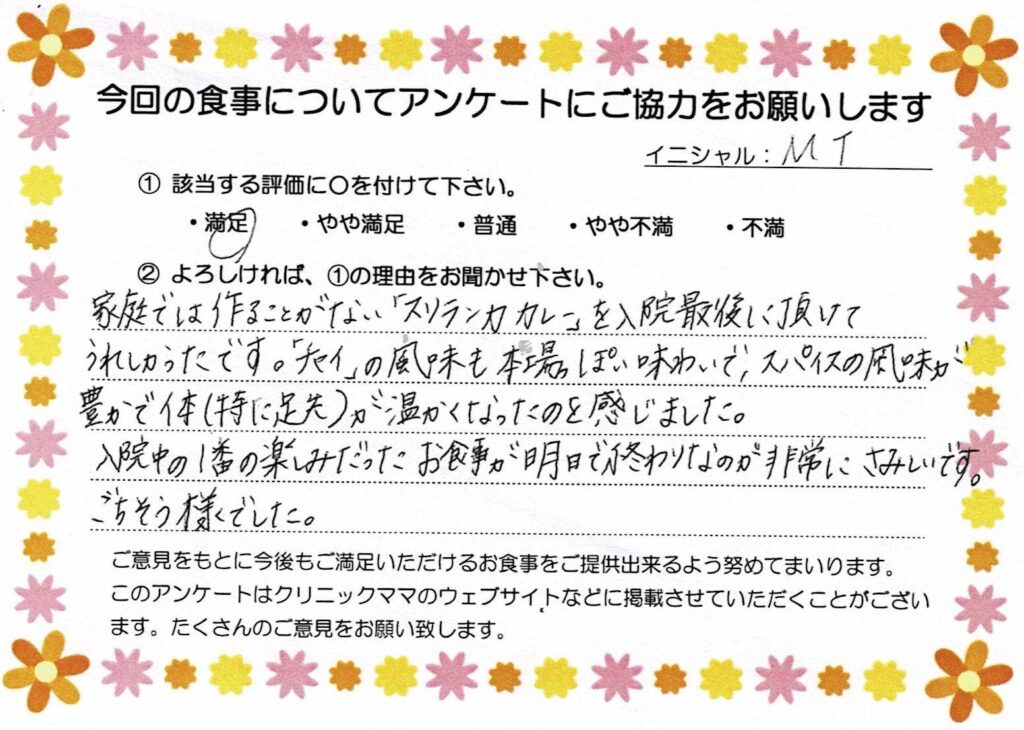 今回の食事についてアンケートにご協力をお願いします
イニシャル：MT
① 該当する評価に〇を付けて下さい。
・満足 ・やや満足 ・普通 ・やや不満 ・不満
② よろしければ、①の理由をお聞かせ下さい。
家庭では作ることがない「スリランカカレー」を入院最後に頂けて
うれしかったです。「チャイ」の風味も本場っぽい味わいで、スパイスの風味が
豊かで体(特に足先)が温かくなったのを感じました。
入院中の1番の楽しみだったお食事が明日で終わりなのが非常にさみしいです。
ごちそう様でした。
ご意見をもとに今後もご満足いただけるお食事をご提供出来るよう努めてまいります。
このアンケートはクリニックママのウェブサイトなどに掲載させていただくことがござい
ます。たくさんのご意見をお願い致します。